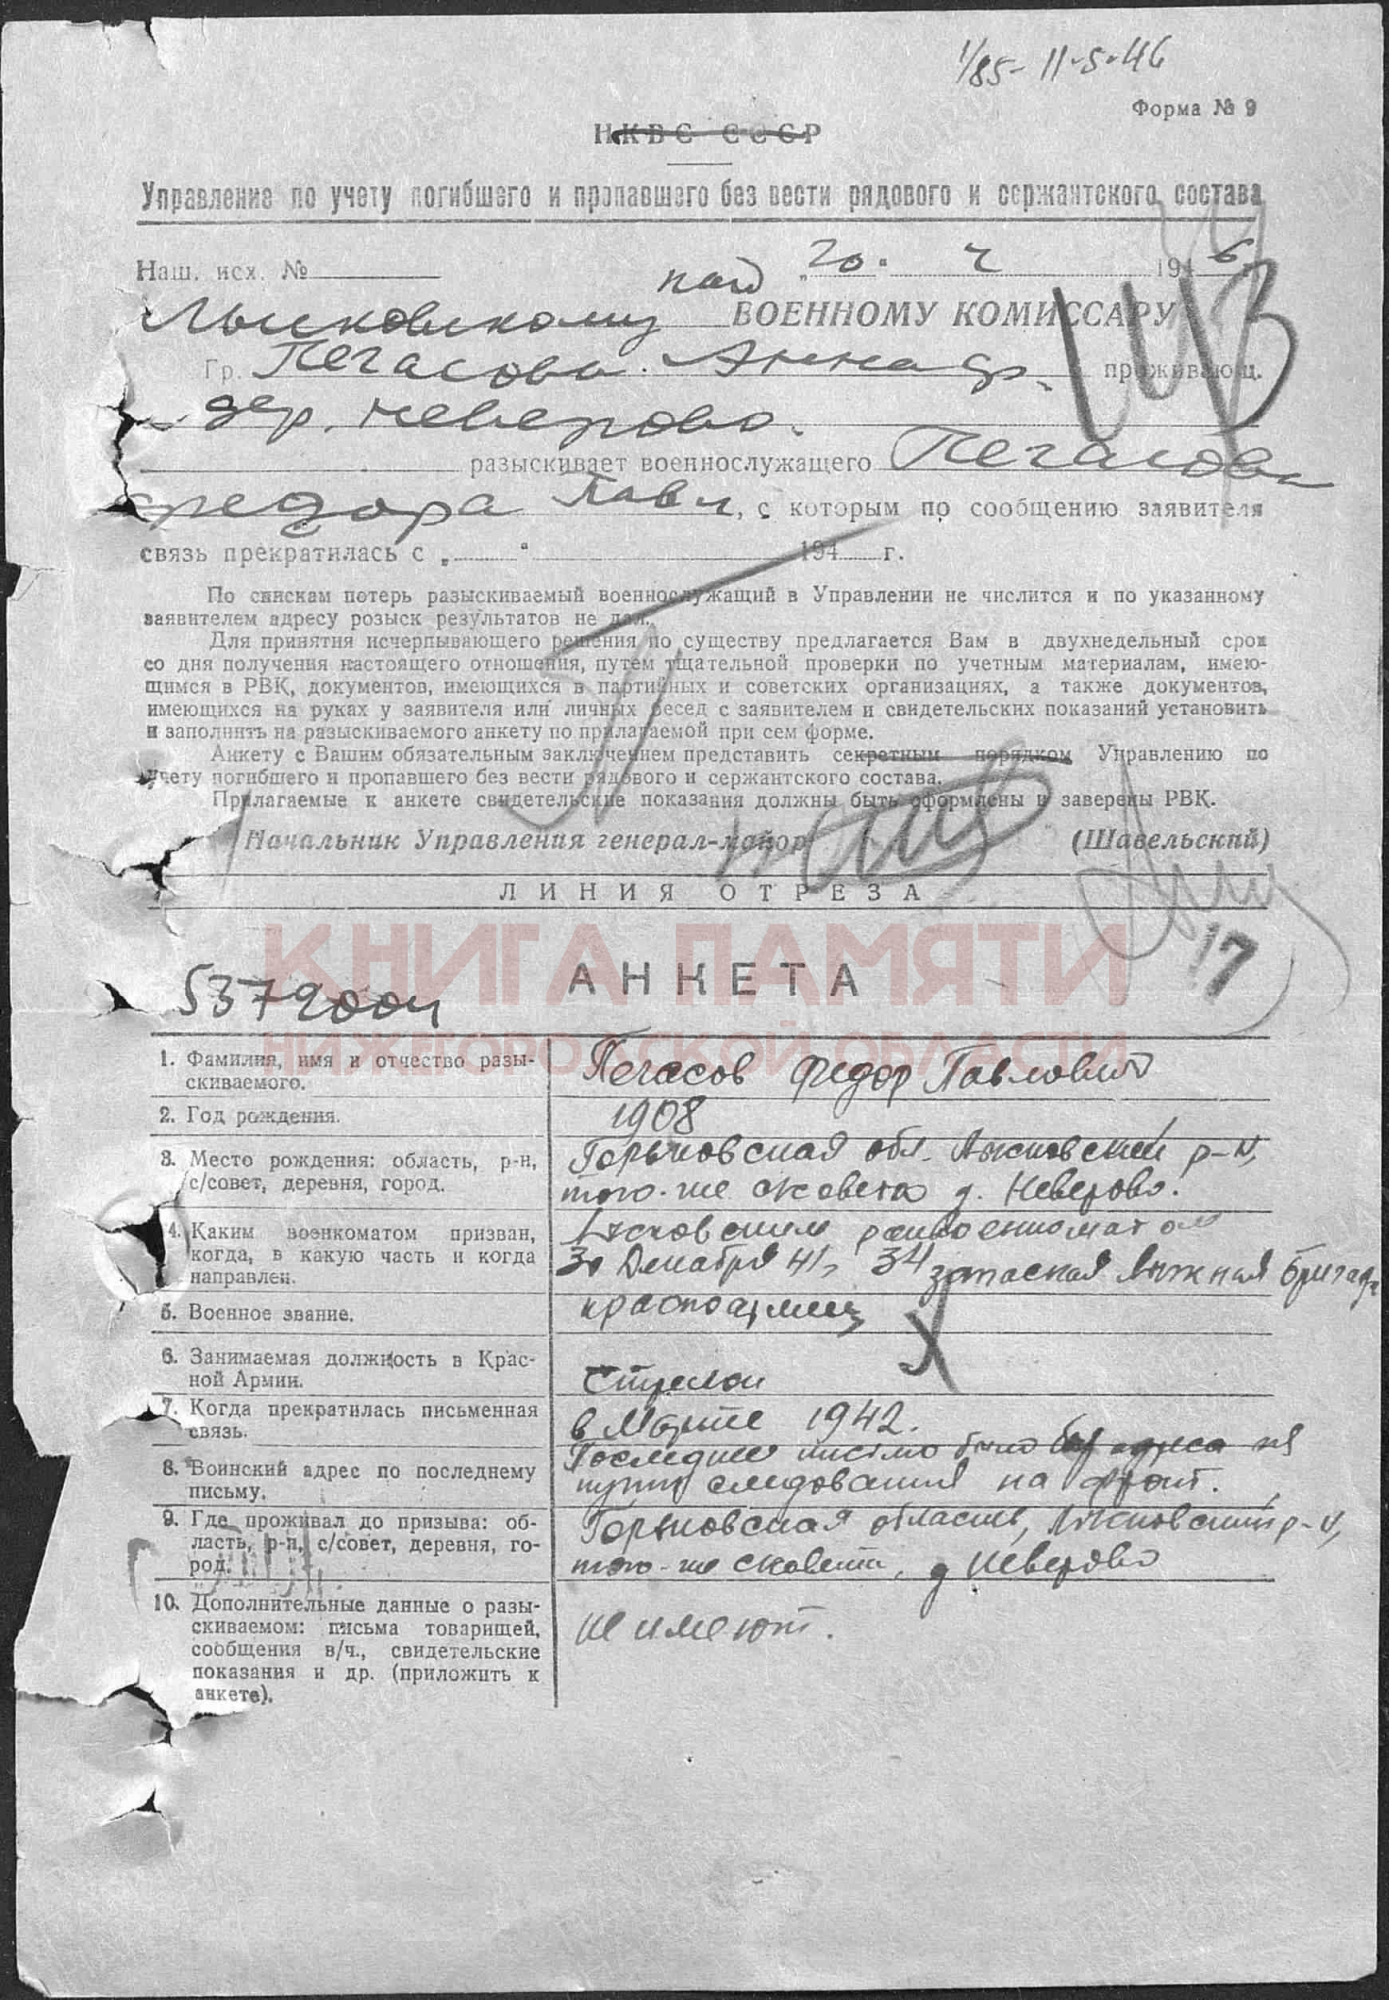 1/85- 11-5-46
Форма № 9
НКВС СССР
Управление по учету погибшего и пропавшего без вести рядового и сержантского состава
Наш. исх. № „20“ 4 1946 г.
Лысковскому рай ВОЕННОМУ КОМИССАРУ
Гр. Пегасова Анна Ф. проживающ.
дер. Неверово.
разыскивает военнослужащего Пегасова
Федора Павл, с которым по сообщению заявителя
связь прекратилась с „ “ 194 г.
По спискам потерь разыскиваемый военнослужащий в Управлении не числится и по указанному
заявителем адресу розыск результатов не дал.
Для принятия исчерпывающего решения по существу предлагается Вам в двухнедельный срок
со дня получения настоящего отношения, путем тщательной проверки по учетным материалам, имею-
щимся в РВК, документов, имеющихся в партийных и советских организациях, а также документов,
имеющихся на руках у заявителя или личных бесед с заявителем и свидетельских показаний установить
и заполнить на разыскиваемого анкету по прилагаемой при сем форме.
Анкету с Вашим обязательным заключением представить секретным порядком Управлению по
учету погибшего и пропавшего без вести рядового и сержантского состава.
Прилагаемые к анкете свидетельские показания должны быть оформлены и заверены РВК.
Начальник Управления генерал-майор (Шавельский)
ЛИНИЯ ОТРЕЗА
КНИГА ПАМЯТИ
НИЖЕГОРОДСКОЙ ОБЛАСТИ
17
АНКЕТА
1. Фамилия, имя и отчество разы-
скиваемого.
Пегасов Федор Павлович
2. Год рождения.
1908
3. Место рождения: область, р-н,
с/совет, деревня, город.
Горьковская обл. Лысковский р-н,
того-же с/совета д. Неверово.
4. Каким военкоматом призван,
когда, в какую часть и когда
направлен.
Лысковским райвоенкоматом
30 Декабря 41г 34 запасная лыжная бригада
5. Военное звание.
красноармеец
6. Занимаемая должность в Крас-
ной Армии.
Стрелок
7. Когда прекратилась письменная
связь.
в Марте 1942.
8. Воинский адрес по последнему
письму.
Последнее письмо было без адреса на
пути следования на фронт.
9. Где проживал до призыва: об-
ласть, р-н, с/совет, деревня, го-
род.
Горьковская область, Лысковский р-н,
того-же с/совета, д Неверово
10. Дополнительные данные о разы-
скиваемом: письма товарищей,
сообщения в/ч., свидетельские
показания и др. (приложить к
анкете).
не имеют.